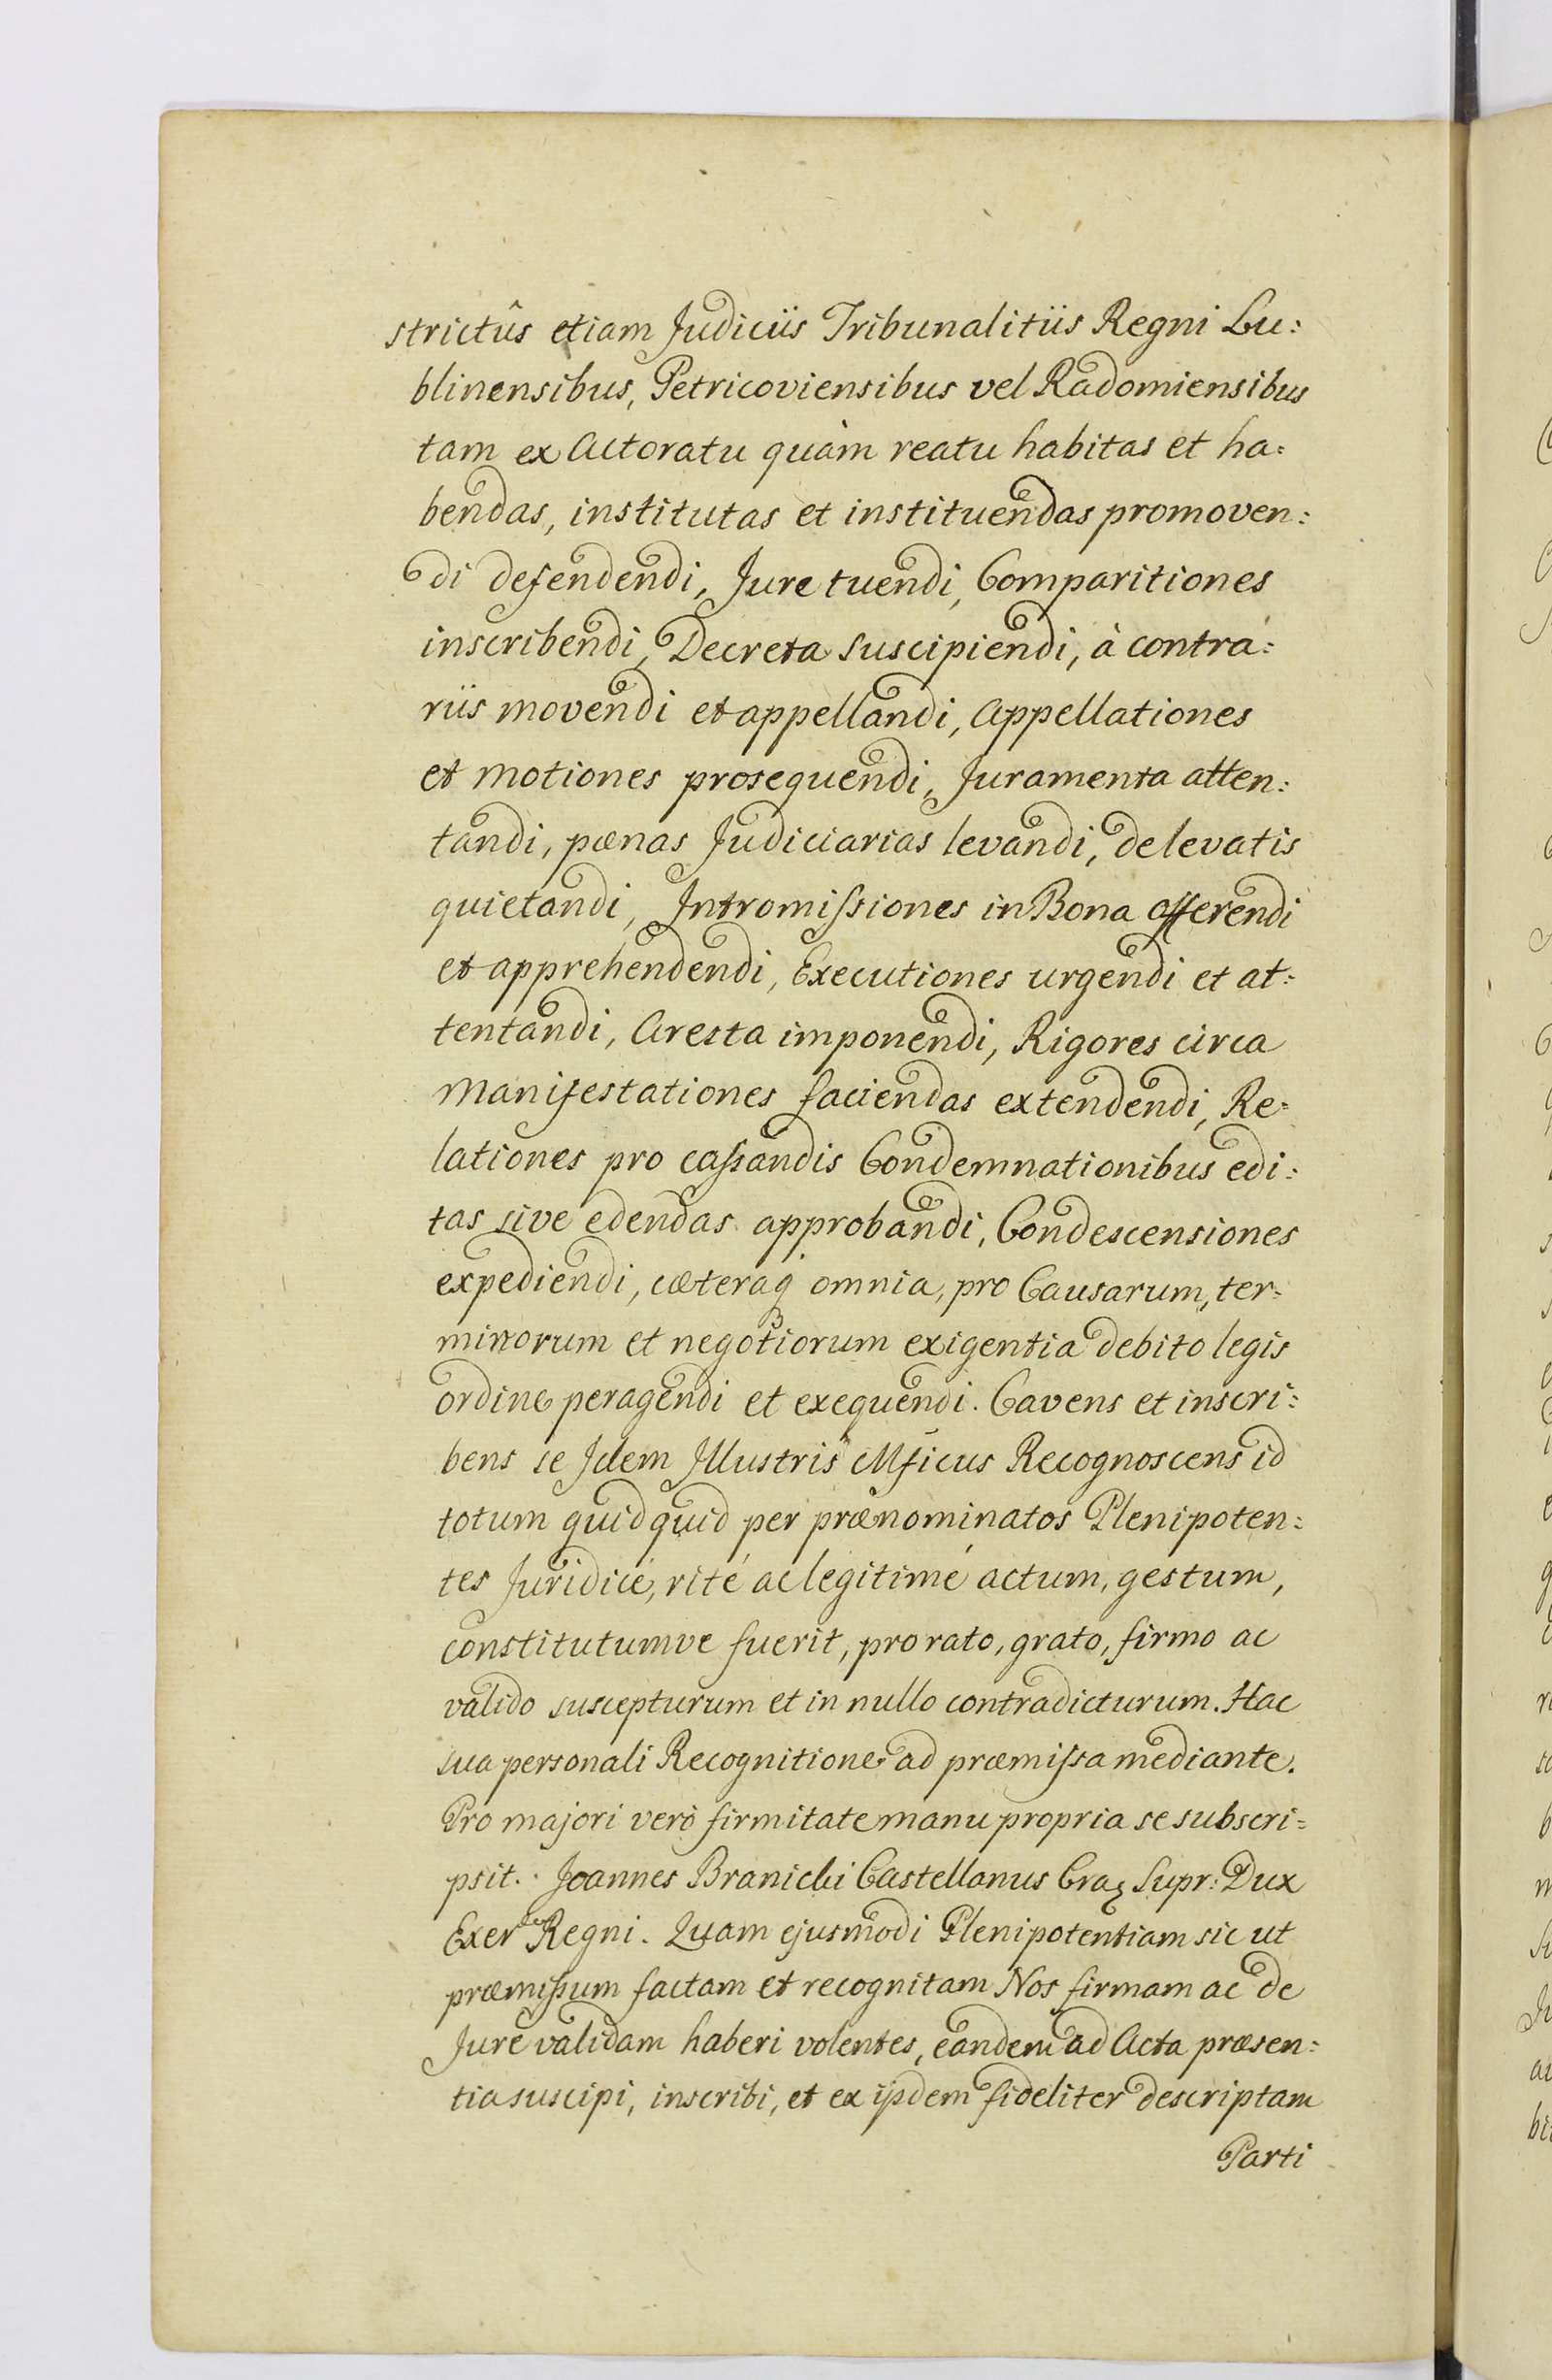 strictûs etiam Judiciis Tribunalitiis Regni Lu:
blinensibus, Petricoviensibus vel Radomiensibus
tam ex Actoratu quàm reatu habitas et ha:
bendas, institutas et instituendas promoven:
di defendendi, Jure tuendi, Comparitiones
inscribendi, Decreta suscipiendi, à contra:
riis movendi et appellandi, Appellationes
et motiones prosequendi, Juramenta atten:
tandi, pœnas Judiciarias levandi, de levatis
quietandi, Intromissiones in Bona offerendi
et apprehendendi, Executiones urgendi et at:
tentandi, Aresta imponendi, Rigores circa
Manifestationes faciendas extendendi, Re:
lationes pro cassandis Condemnationibus edi:
tas sive edendas approbandi, Condescensiones
expediendi, cæteraq; omnia, pro Causarum, ter:
minorum et negotiorum exigentia debito legis
ordine peragendi et exequendi. Cavens et inscri:
bens se Idem Illustris Mficus Recognoscens id
totum quidquid per prænominatos Plenipoten:
tes Juridicé, rité ac legitimé actum, gestum,
constitutumve fuerit, pro rato, grato, firmo ac
valido suscepturum et in nullo contradicturum. Hac
sua personali Recognitione ad præmissa mediante.
Pro majori verò firmitate manu propria se subscri:
psit. Joannes Branicki Castellanus Crac Supr: Dux
Exer Regni. Quam ejusmodi Plenipotentiam sic ut
præmissum factam et recognitam Nos firmam ac de
Jure validam haberi volentes, eandem ad Acta præsen:
tia suscipi, inscribi, et ex ijsdem fideliter descriptam
Parti